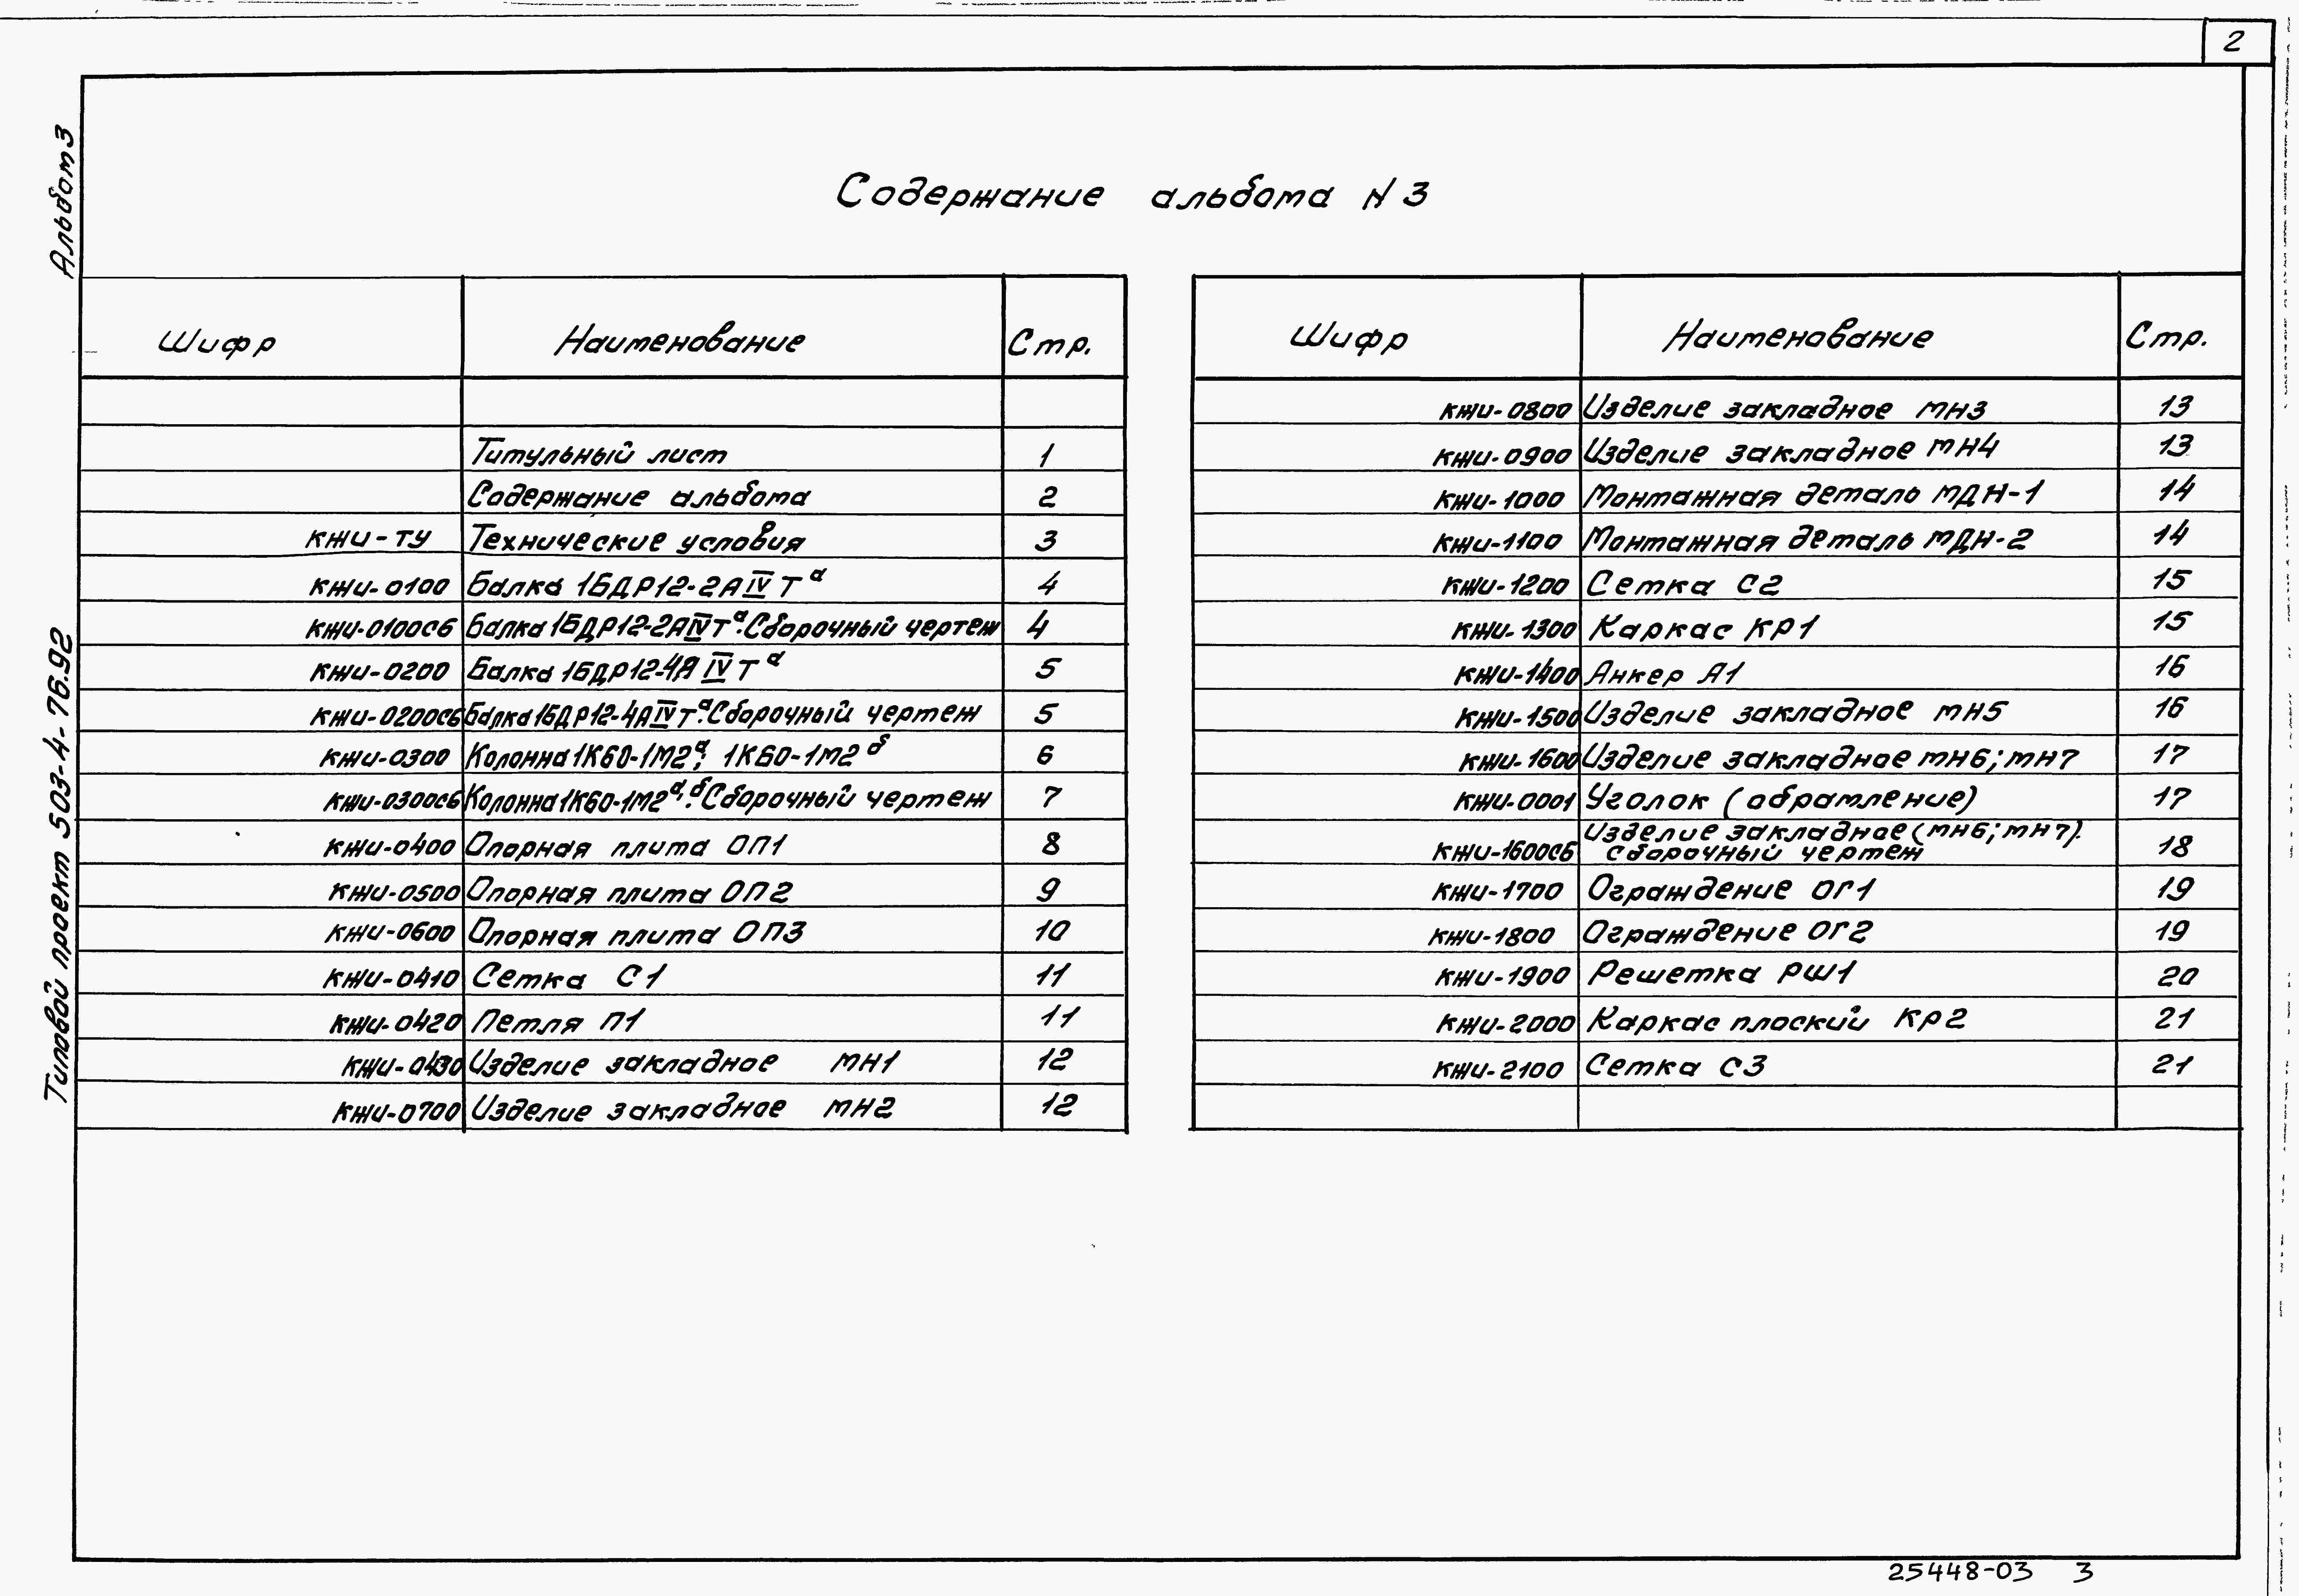 2
Альбом 3
Типовой проект 503-4-76.92
Содержание альбома N 3
Шифр Наименование Стр.
Титульный лист 1
Содержание альбома 2
КЖИ-ТУ Технические условия 3
КЖИ-0100 Балка 1БДР12-2АIVТа 4
КЖИ-0100СБ Балка 1БДР12-2АIVТа. Сборочный чертеж 4
КЖИ-0200 Балка 1БДР12-4АIVТа 5
КЖИ-0200СБ Балка 1БДР12-4АIVТа. Сборочный чертеж 5
КЖИ-0300 Колонна 1К60-1М2а; 1К60-1М2б 6
КЖИ-0300СБ Колонна 1К60-1М2а,б. Сборочный чертеж 7
КЖИ-0400 Опорная плита ОП1 8
КЖИ-0500 Опорная плита ОП2 9
КЖИ-0600 Опорная плита ОП3 10
КЖИ-0410 Сетка С1 11
КЖИ-0420 Петля П1 11
КЖИ-0430 Изделие закладное МН1 12
КЖИ-0700 Изделие закладное МН2 12
Шифр Наименование Стр.
КЖИ-0800 Изделие закладное МН3 13
КЖИ-0900 Изделие закладное МН4 13
КЖИ-1000 Монтажная деталь МДН-1 14
КЖИ-1100 Монтажная деталь МДН-2 14
КЖИ-1200 Сетка С2 15
КЖИ-1300 Каркас КР1 15
КЖИ-1400 Анкер А1 16
КЖИ-1500 Изделие закладное МН5 16
КЖИ-1600 Изделие закладное МН6; МН7 17
КЖИ-0001 Уголок (обрамление) 17
Изделие закладное (МН6; МН7).
КЖИ-1600СБ Сборочный чертеж 18
КЖИ-1700 Ограждение ОГ1 19
КЖИ-1800 Ограждение ОГ2 19
КЖИ-1900 Решетка РШ1 20
КЖИ-2000 Каркас плоский КР2 21
КЖИ-2100 Сетка С3 21
25448-03 3